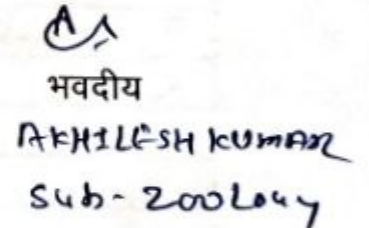 भवदीय
AKHILESH KUMAR
Sub - Zoology